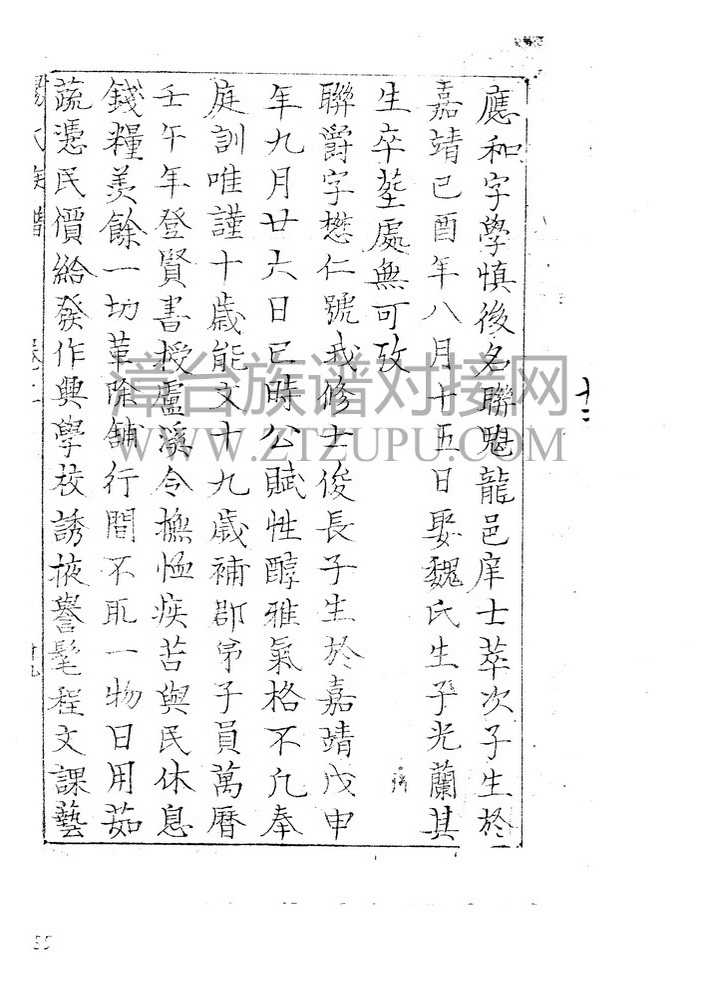 應和字學慎後名聯魁龍邑庠士萃次子生於
嘉靖己酉年八月十五日娶魏氏生子光蘭其
生卒塟處無可攷
聯爵字懋仁號我修士俊長子生於嘉靖戊申
年九月廿六日巳時公賦性醇雅氣格不凢奉
庭訓唯謹十歲能文十九歲補郡弟子員萬曆
壬午年登賢書授盧溪令撫恤疾苦與民休息
錢糧羡餘一切革除舖行間不取一物日用茹
蔬憑民價給發作興學校誘掖譽髦程文課藝
氏族譜
十二
漳台族谱对接网
WWW.ZTZUPU.COM
55